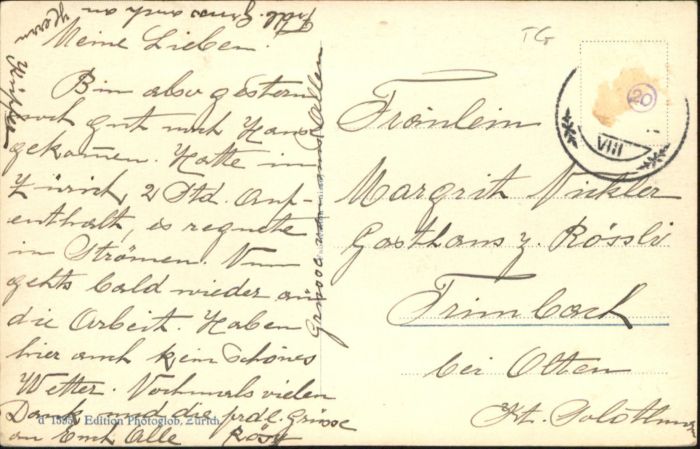 Meine Lieben!
Bin also gestern
noch gut nach Haus
gekommen. Hatte in
Zürich, 2 Std. Auf-
enthalt, es regnete
in Strömen. Nun
gehts bald wieder an
die Arbeit. Haben
hier auch kein schönes
Wetter. Nochmals vielen
Dank und die frdl. Grüsse
an Euch Alle Rösy
Frdl. Gruss auch an
Herrn
Grüsse von uns Allen
d 1556 Edition Photoglob, Zürich
TG
20
VIII
Fröulein
Margrith Nickler
Gasthaus z. Rössli
Trimbach
bei Olten
Kt. Solothurn